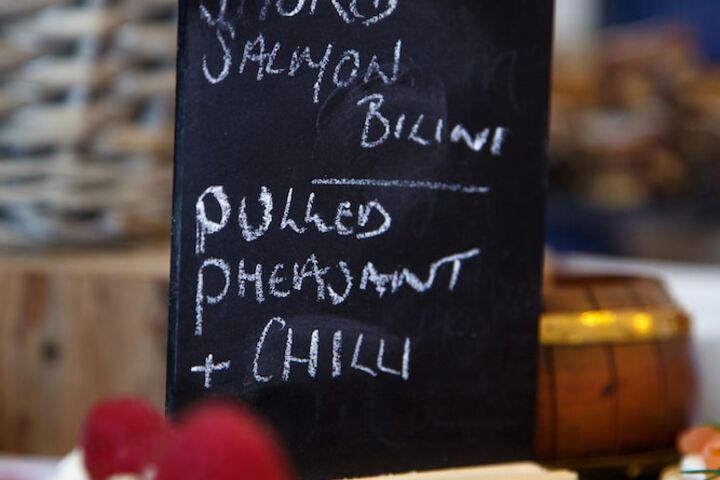 SMOKED
SALMON
BILINI
PULLED
PHEASANT
+ CHILLI